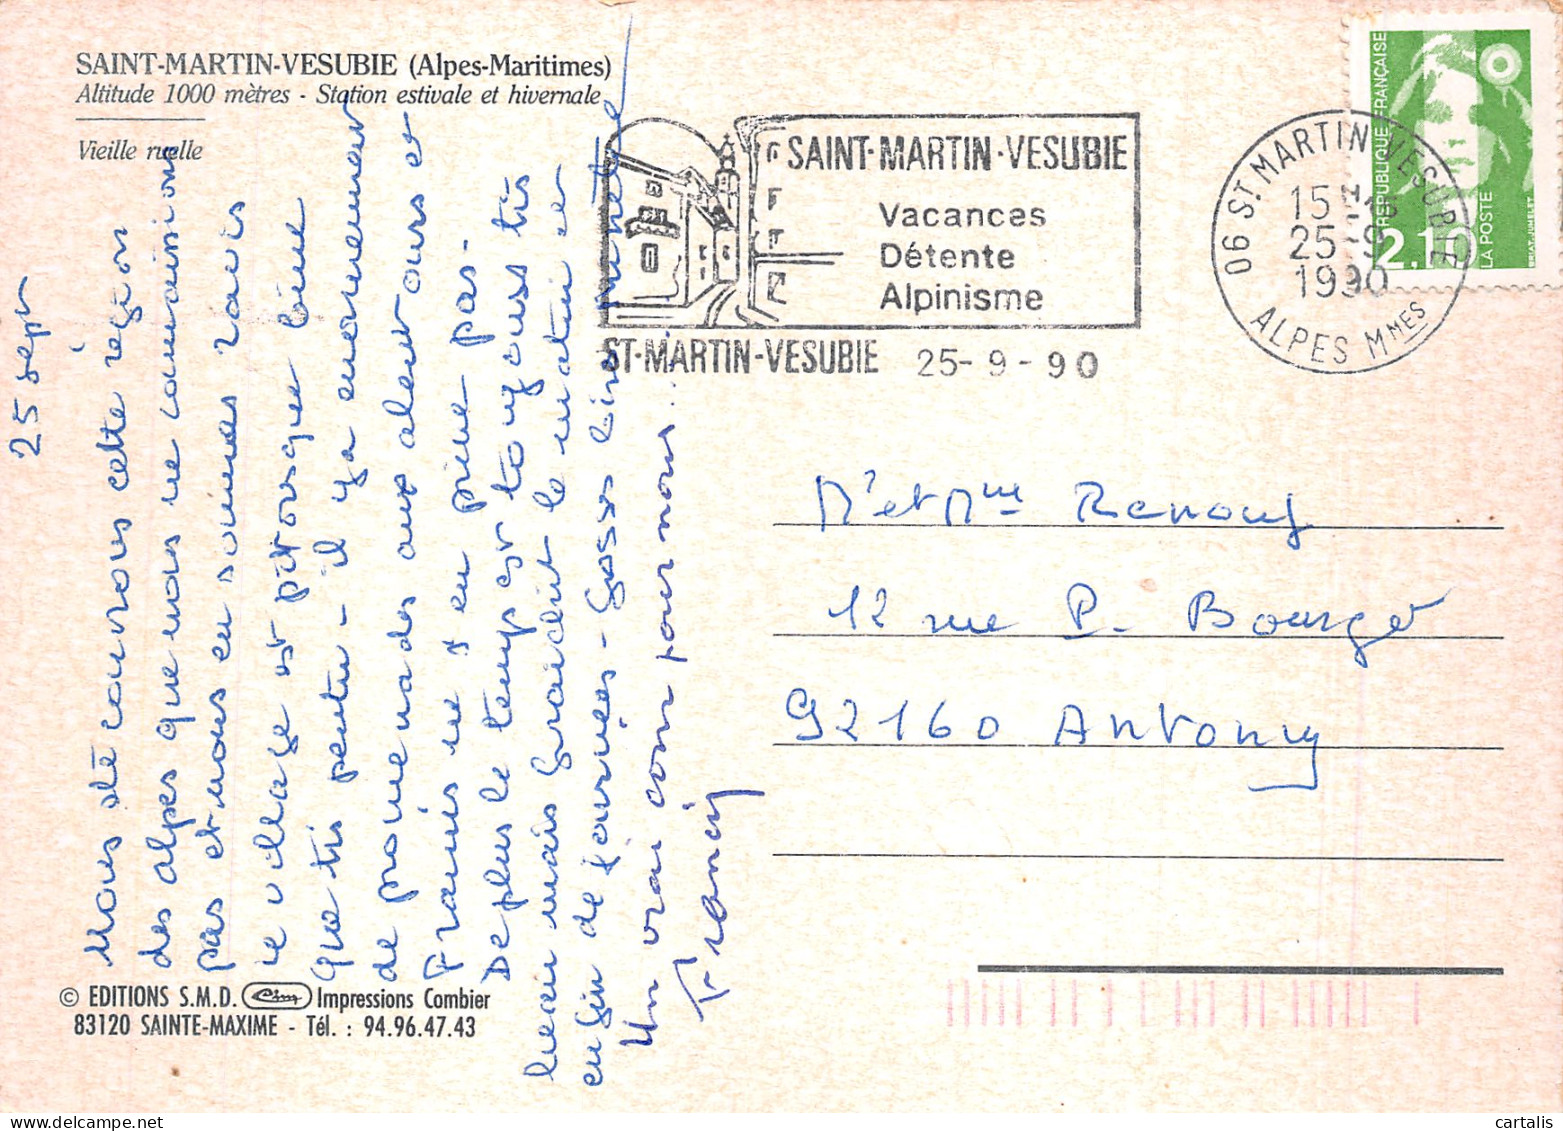 SAINT-MARTIN-VESUBIE (Alpes-Maritimes)
Altitude 1000 mètres - Station estivale et hivernale
Vieille ruelle
25 sept
Nous découvrons cette région
des alpes que nous ne connaissions
pas et nous en sommes ravis
le village est pittoresque bien
que très pentu - il y a énormément
de promenades aux alentours et
Francis ne s'en prive pas -
De plus le temps est toujours très
beau mais fraichit le matin et
en fin de journées - Grosses bises
Un vrai com pour nous..
Francis
SAINT-MARTIN-VESUBIE
Vacances
Détente
Alpinisme
ST-MARTIN-VESUBIE 25-9-90
06 ST MARTIN VESUBIE
15H
25-9
1990
ALPES MMES
REPUBLIQUE FRANÇAISE
2,10
LA POSTE
BRIAT-JUMELET
Mr et Mme Renouf
12 rue P. Bourget
92160 Antony
© EDITIONS S.M.D. Cim Impressions Combier
83120 SAINTE-MAXIME - Tél. : 94.96.47.43
cartalis